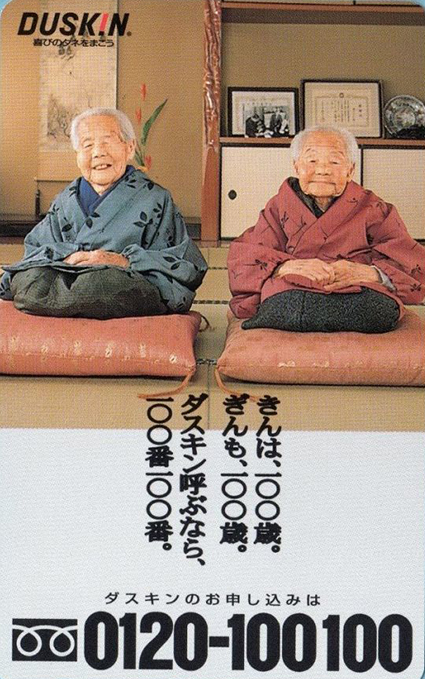 DUSKIN®
喜びのタネをまこう
きんは、一〇〇歳。
ぎんも、一〇〇歳。
ダスキン呼ぶなら、
一〇〇番一〇〇番。
ダスキンのお申し込みは
0120-100100